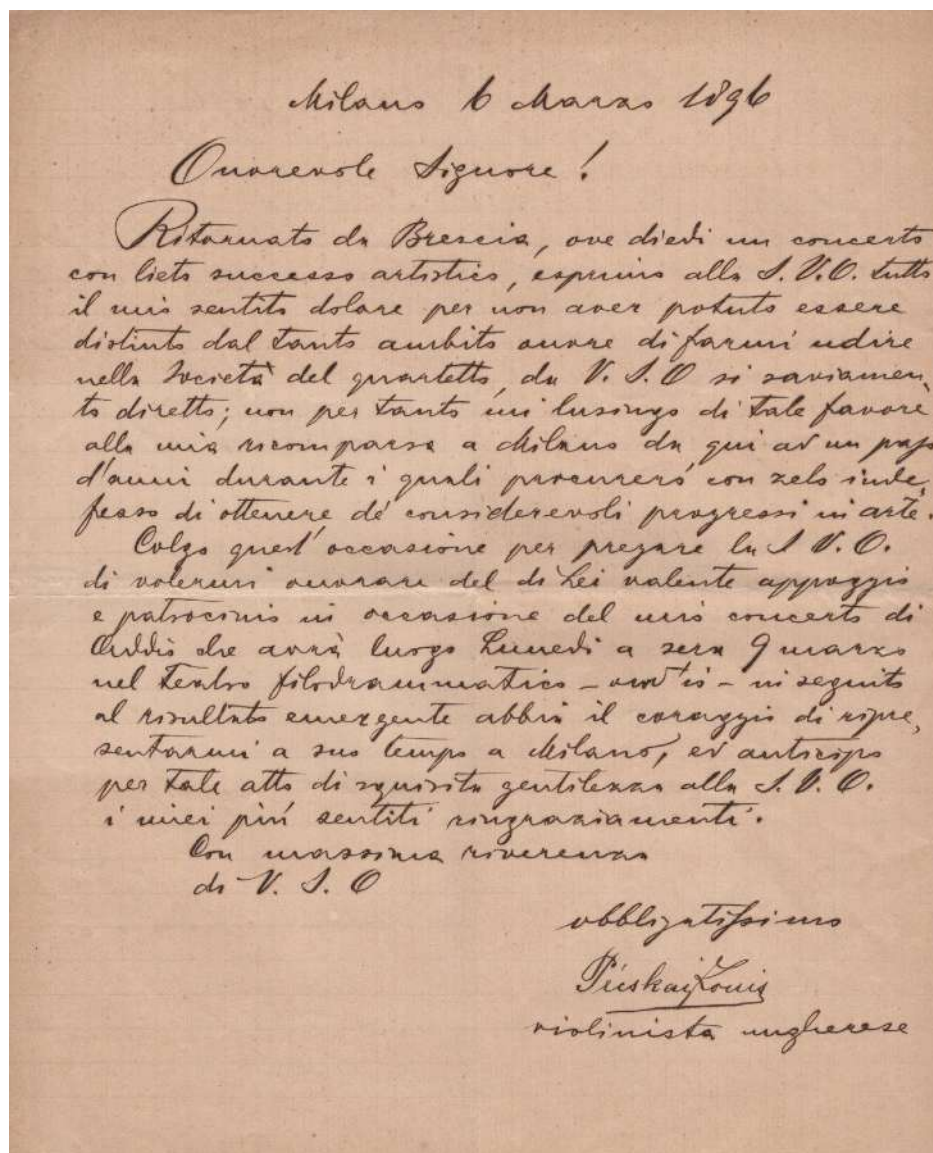 Milano 6 Marzo 1896
Onorevole Signore!
Ritornato da Brescia, ove diedi un concerto
con lieto successo artistico, esprimo alla S. V. O. tutto
il mio sentito dolore per non aver potuto essere
distinto dal tanto ambito onore di farmi udire
nella Società del quartetto, da V. S. O si saviamen„
to diretto; non per tanto mi lusingo di tale favore
alla mia ricomparsa a Milano da qui ad un pajo
d'anni durante i quali procurerò con zelo inde„
fesso di ottenere de' considerevoli progressi in arte.
Colgo quest'occasione per pregare la S V. O.
di volermi onorare del di Lei valente appoggio
e patrocinio in occasione del mio concerto di
Addio che avrà luogo Lunedì a sera 9 marzo
nel Teatro filodrammatico – – in seguito
al risultato emergente abbia il coraggio di ripre„
sentarmi a suo tempo a Milano, ed anticipo
per tale atto di squisita gentilezza alla S. V. O.
i miei più sentiti ringraziamenti.
Con massima riverenza
di V. S. O
obbligatissimo
Louis
violinista ungherese